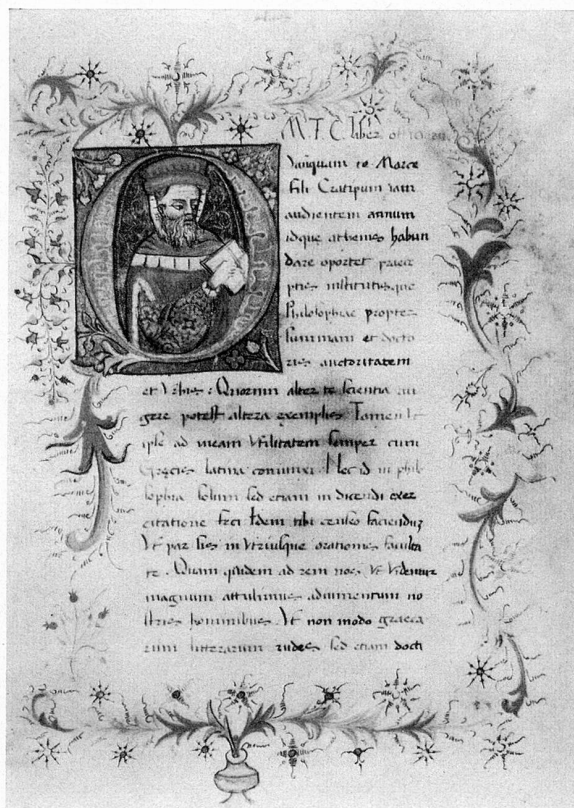 M. T. C. liber
Quanquam te Marce
fili Cratipum iam
audientem annum
idque athenis habun
dare oportet praece
ptis institutisque
Philosophiae propter
summam et docto
ris auctoritatem
et Vrbis : Quorum alter te scientia au
gere potest altera exemplis Tamen Vt
ipse ad meam Vtilitatem semper cum
Grecis latina coniunxi. Nec id in phil
sophia solum sed etiam in dicendi exer
citatione feci Idem tibi censeo faciendum
Vt par sis in Vtriusque orationis faculta
te. Quam quidem ad rem nos Vt Videmur
magnum attulimus adiumentum no
stris hominibus. Vt non modo graeca
rum litterarum rudes sed etiam docti